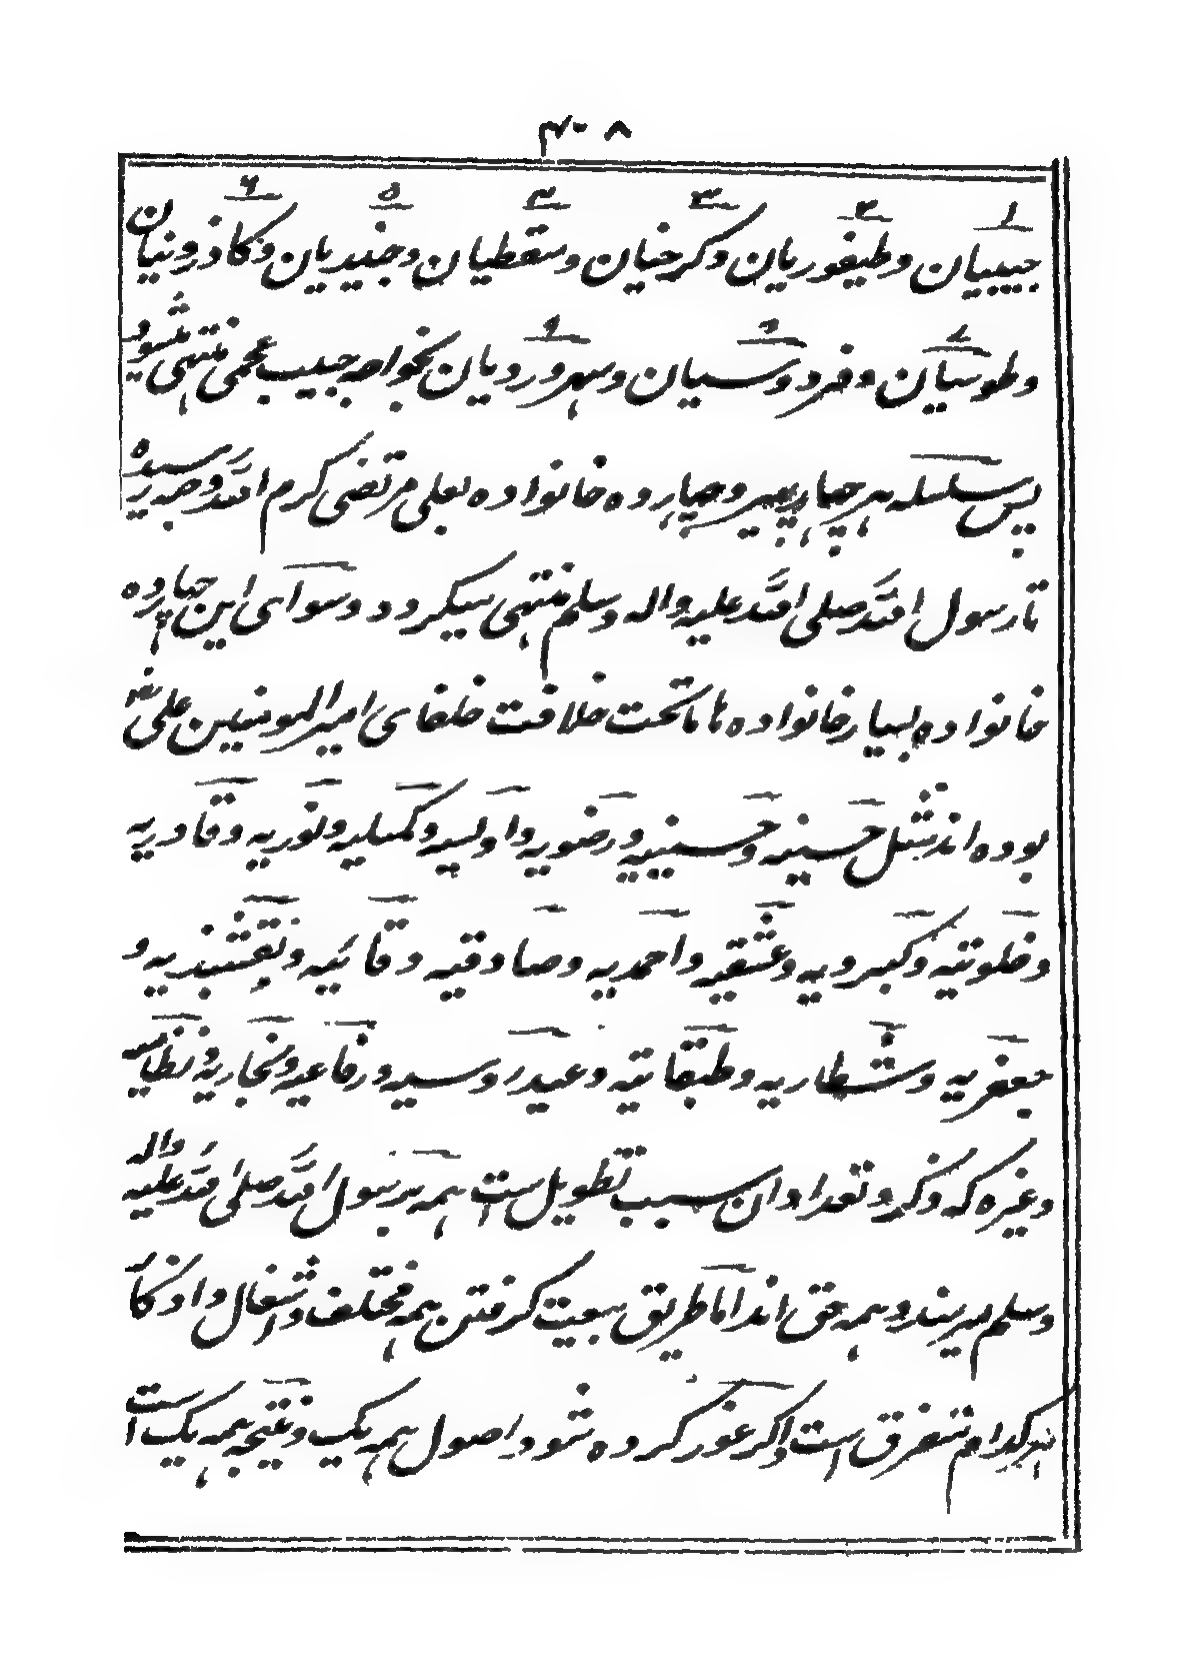 ۴۰۸
۱ ۲ ۳ ۴ ۵ ۶
حبیبیان و طیفوریان و کرخیان و سقطیان و جنیدیان و کاذرونیان
۷ ۸ ۹
و طوسیان و فردوسیان و سهروردیان بخواجه حبیب عجمی منتهی میشود
پس سلسله هر چهار پیر و چهارده خانواده بعلی مرتضی کرم الله وجهه رسیده
تا رسول الله صلی الله علیه واله وسلم منتهی میگردد و سوای این چهارده
خانواده بسیار خانواده ها ماتحت خلافت خلفای امیر المومنین علی رض
بوده اند مثل حسنیه و حسینیه و رضویه و اویسیه و کمیلیه و نوریه و قادریه
و خلوتیه و کبرویه و عشقیه و احمدیه و صادقیه و قائمیه و نقشبندیه و
جعفریه و شطاریه و طبقاتیه و عیدروسیه و رفاعیه و بخاریه و نظامیه
وغیره که ذکر و تعداد ان سبب تطویل ست همه بر رسول الله صلی الله علیه واله
وسلم میرسند و همه حق اند اما طریق بیعت گرفتن همه مختلف و اشغال و اذکار
هر کدام متفرق است و اگر غور کرده شود اصول همه یک و نتیجه همه یک است